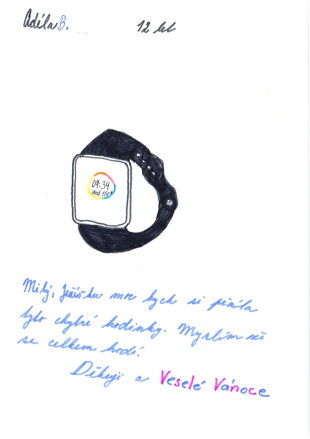 Adéla B. 12 let
09:34
Milý, Ježíšku moc bych si přála
tyto chytré hodinky. Myslím že
se celkem hodí.
Děkuji a Veselé Vánoce